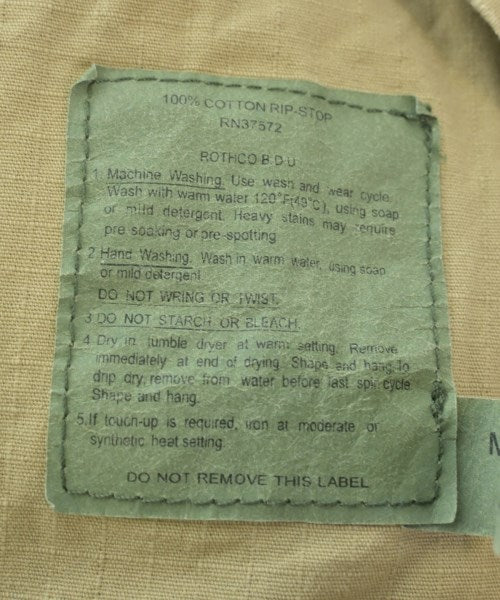 100% COTTON RIP-STOP
RN37572
ROTHCO B.D.U
1. Machine Washing. Use wash and wear cycle.
Wash with warm water 120°F(49°C), using soap
or mild detergent. Heavy stains may require
pre-soaking or pre-spotting
2. Hand Washing. Wash in warm water, using soap
or mild detergent
DO NOT WRING OR TWIST.
3 DO NOT STARCH OR BLEACH.
4. Dry in tumble dryer at warm setting. Remove
immediately at end of drying. Shape and hang. To
drip dry, remove from water before last spin cycle
Shape and hang.
5. If touch-up is required, iron at moderate or
synthetic heat setting.
DO NOT REMOVE THIS LABEL
M